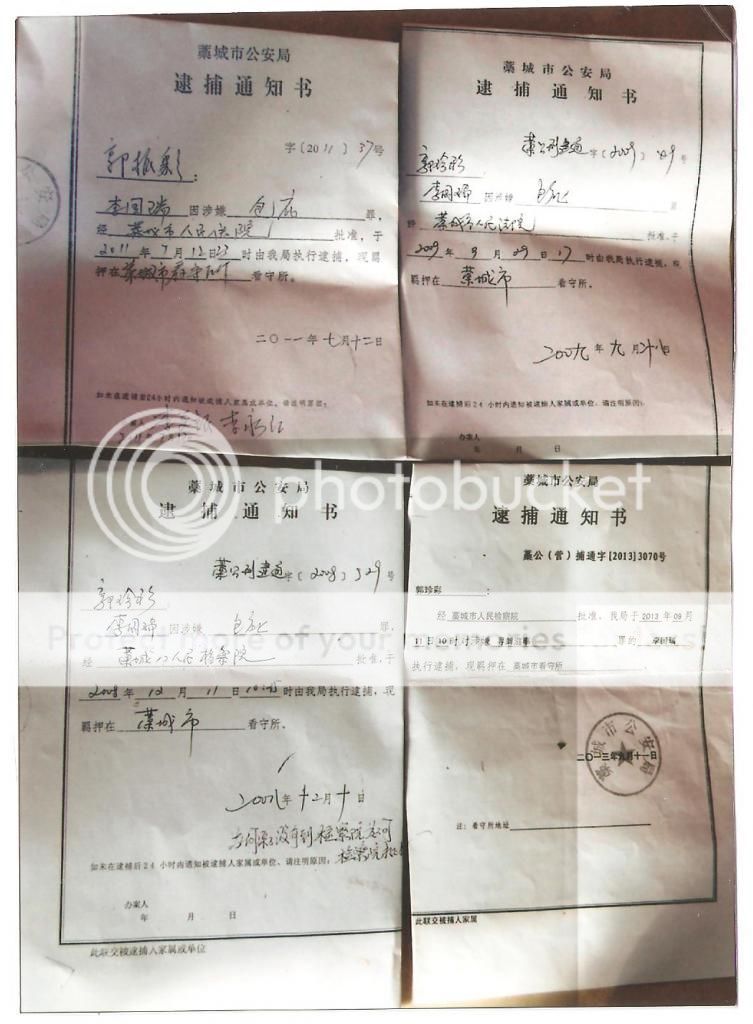 藁城市公安局
逮捕通知书
字〔2011〕37号
郭振彩：
李国瑞因涉嫌包庇罪，
经藁城市人民法院批准，于
2011年7月12日23时由我局执行逮捕，现羁
押在藁城市看守所看守所。
二〇一一年七月十二日
如未在逮捕后24小时内通知被逮捕人家属或单位，请注明原因：
李永江
藁城市公安局
逮捕通知书
藁公刑逮通字〔2009〕号
郭珍彩
李国瑞因涉嫌包庇罪
经藁城市人民法院批准，于
2009年9月29日17时由我局执行逮捕，现
羁押在藁城市看守所。
2009年九月日
如未在逮捕后24小时内通知被逮捕人家属或单位，请注明原因：
办案人
年 月 日
藁城市公安局
逮捕通知书
藁公刑逮通字〔2008〕329号
郭珍彩
李国瑞因涉嫌包庇罪，
经藁城市人民检察院批准，于
2008年12月11日10时由我局执行逮捕，现
羁押在藁城市看守所。
2008年十二月十日
没有到检察院
检察院
如未在逮捕后24小时内通知被逮捕人家属或单位，请注明原因：
办案人
年 月 日
此联交被逮捕人家属或单位
藁城市公安局
逮捕通知书
藁公（营）捕通字[2013]3070号
郭珍彩：
经藁城市人民检察院批准，我局于2013年09月
11日10时对涉嫌寻衅滋事罪的李国瑞
执行逮捕，现羁押在藁城市看守所
藁城市公安局
二〇一三年九月十一日
注：看守所地址
此联交被捕人家属
公安局
photobucket
Protect more of your memories